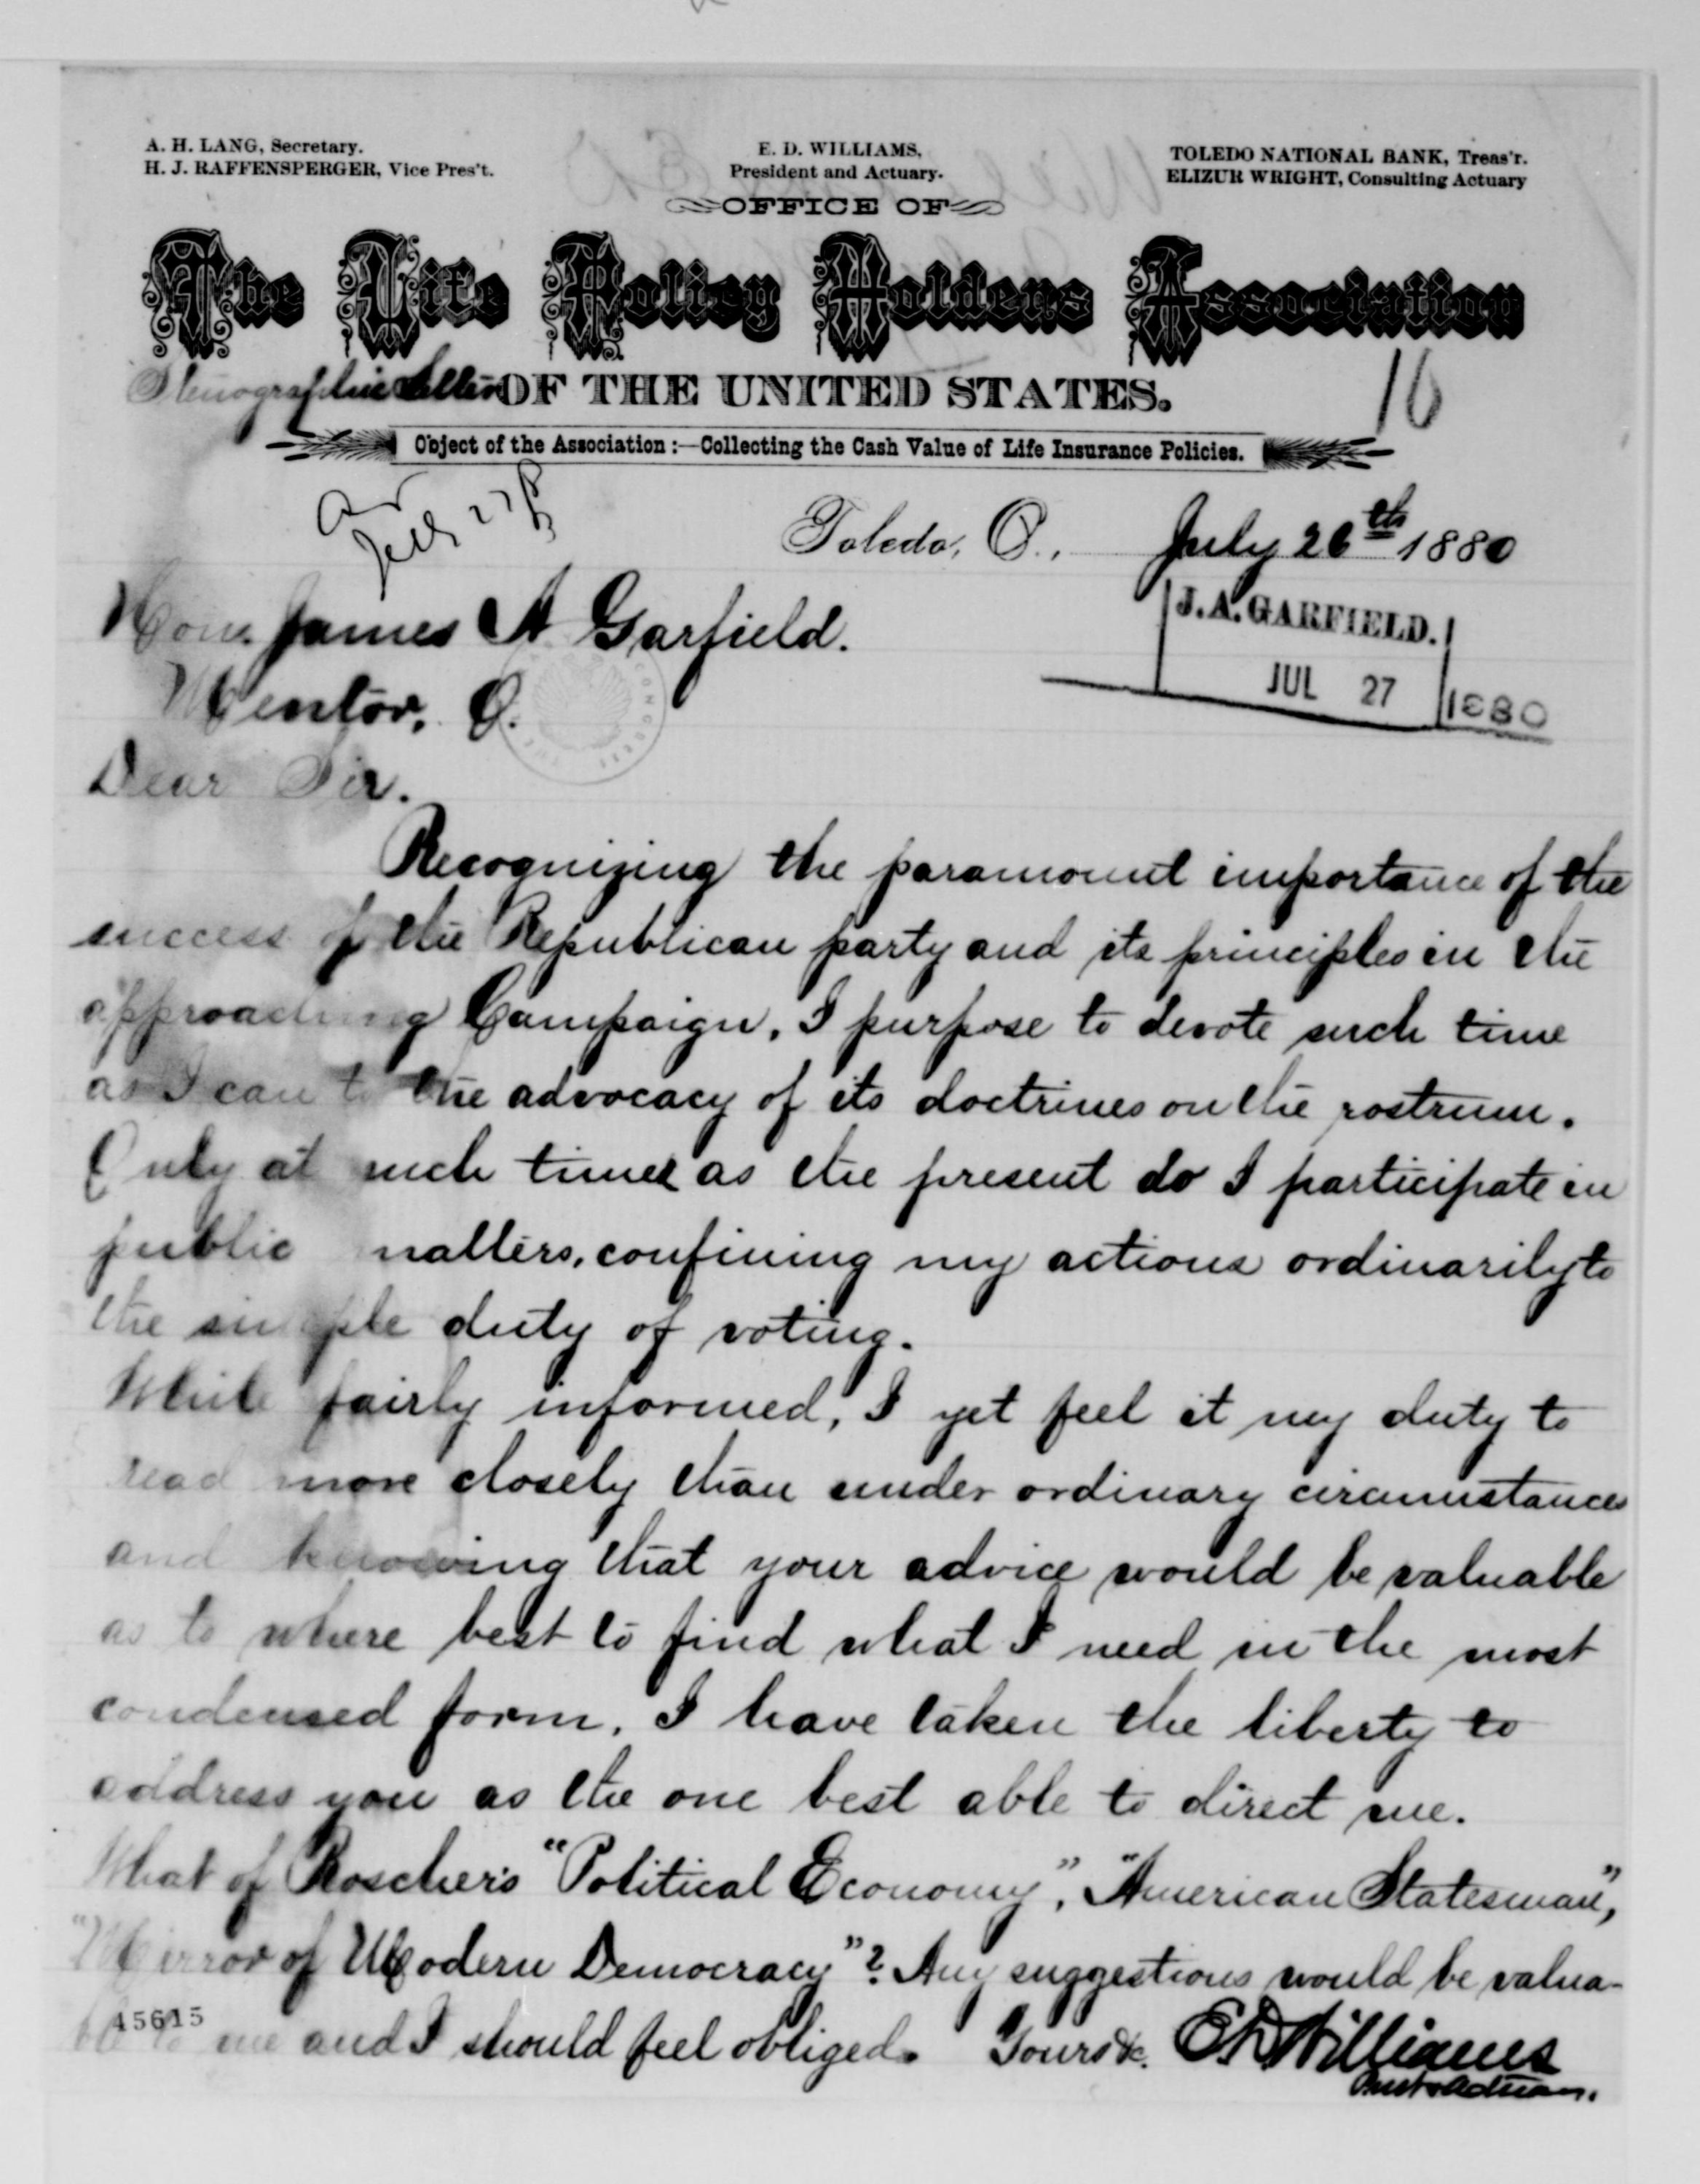 A. H. LANG, Secretary.
H. J. RAFFENSPERGER, Vice Pres't.
E. D. WILLIAMS,
President and Actuary.
TOLEDO NATIONAL BANK, Treas'r.
ELIZUR WRIGHT, Consulting Actuary
OFFICE OF
The Life Policy Holders Association
Stenographic Letter
OF THE UNITED STATES.
16
Object of the Association:—Collecting the Cash Value of Life Insurance Policies.
Toledo, O., July 26th 1880
J. A. GARFIELD.
JUL 27 1880
Hon. James A Garfield.
Mentor, O.
Dear Sir.
Recognizing the paramount importance of the
success of the Republican party and its principles in the
approaching Campaign, I purpose to devote such time
as I can to the advocacy of its doctrines on the rostrum.
Only at such times as the present do I participate in
public matters, confining my actions ordinarily to
the simple duty of voting.
While fairly informed, I yet feel it my duty to
read more closely than under ordinary circumstances
and knowing that your advice would be valuable
as to where best to find what I need in the most
condensed form, I have taken the liberty to
address you as the one best able to direct me.
What of Roscher's "Political Economy", "American Statesman",
"Mirror of Modern Democracy"? Any suggestions would be valua-
ble to me and I should feel obliged. Yours &c. E D Williams
45615